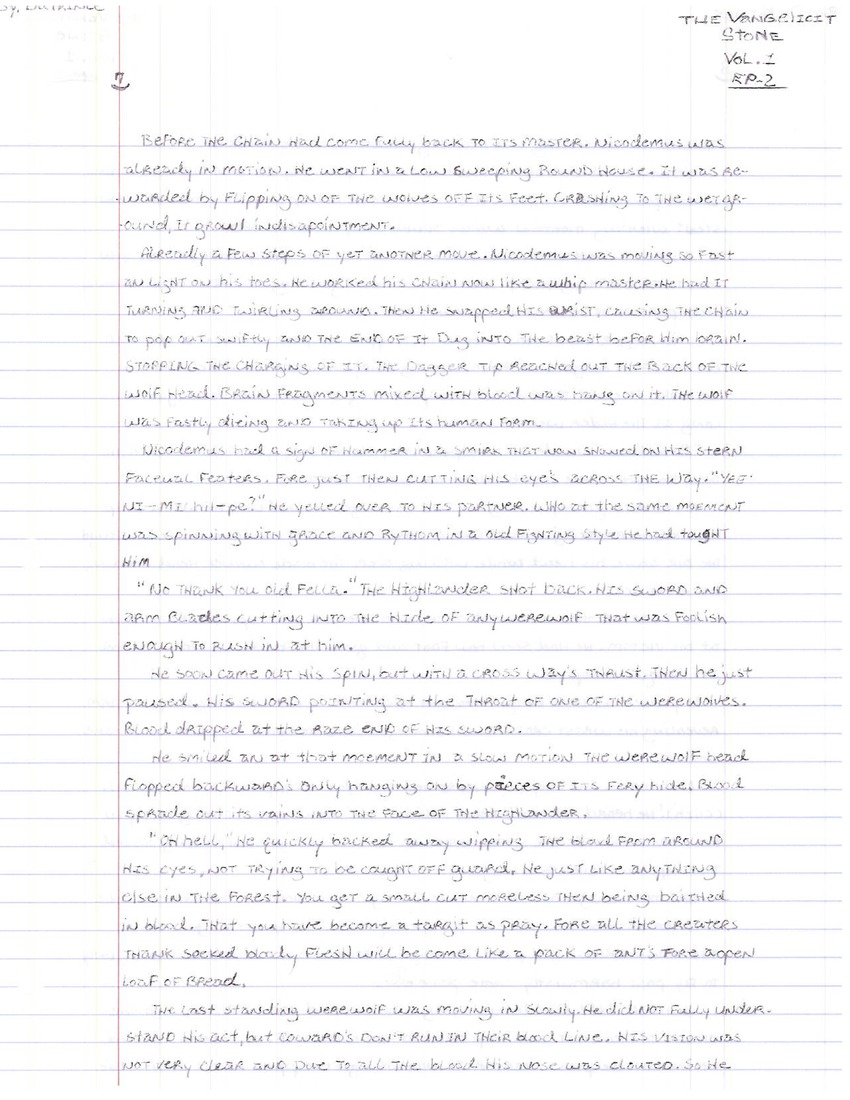 THE VANGELICIT
STONE
VOL. 1
EP-2
7
Before the chain had come fully back to its master. Nicodemus was
already in motion. He went in a low sweeping round house. It was re-
warded by flipping on of the wolves off its feet. Crashing to the wet gr-
ound, It growl indisapointment.
Alreadly a few steps of yet another move. Nicodemus was moving so fast
an light on his toes. He worked his chain now like a whip master. He had it
turning and twirling around. Then he snapped his wrist, causing the chain
to pop out swiftly and the end of it dug into the beast befor him brain.
Stopping the charging of it. The dagger tip reached out the back of the
wolf head. Brain fragments mixed with blood was hang on it. The wolf
was fastly dieing and taking up its human form.
Nicodemus had a sign of hummer in a smirk that now showed on his stern
faceual featers. Fore just then cutting his eye's across the way. "Yee-
Ni-Mi hil-pe?" He yelled over to his partner. Who at the same moement
was spinning with grace and rythom in a old fighting style he had tought
him
"No thank you old fella." The Highlander shot back. His sword and
arm blades cutting into the hide of any werewolf that was foolish
enough to rush in at him.
He soon came out his spin, but with a cross way's thrust. Then he just
paused. His sword pointing at the throat of one of the werewolves.
Blood dripped at the raze end of his sword.
He smiled an at that moement in a slow motion the werewolf head
flopped backward's only hanging on by pieces of its fery hide. Blood
sprade out its vains into the face of the Highlander.
"Oh hell," He quickly backed away wipping the blood from around
his eyes, not trying to be caught off guard. He just like anything
else in the forest. You get a small cut moreless then being baithed
in blood. That you have become a targit as pray. Fore all the creaters
thank socked bloody flesh will be come like a pack of ant's fore a open
loaf of bread.
The last standing werewolf was moving in slowly. He did not fully under-
stand his act, but coward's don't run in their blood line. His vision was
not very clear and due to all the blood his nose was clouted. So he